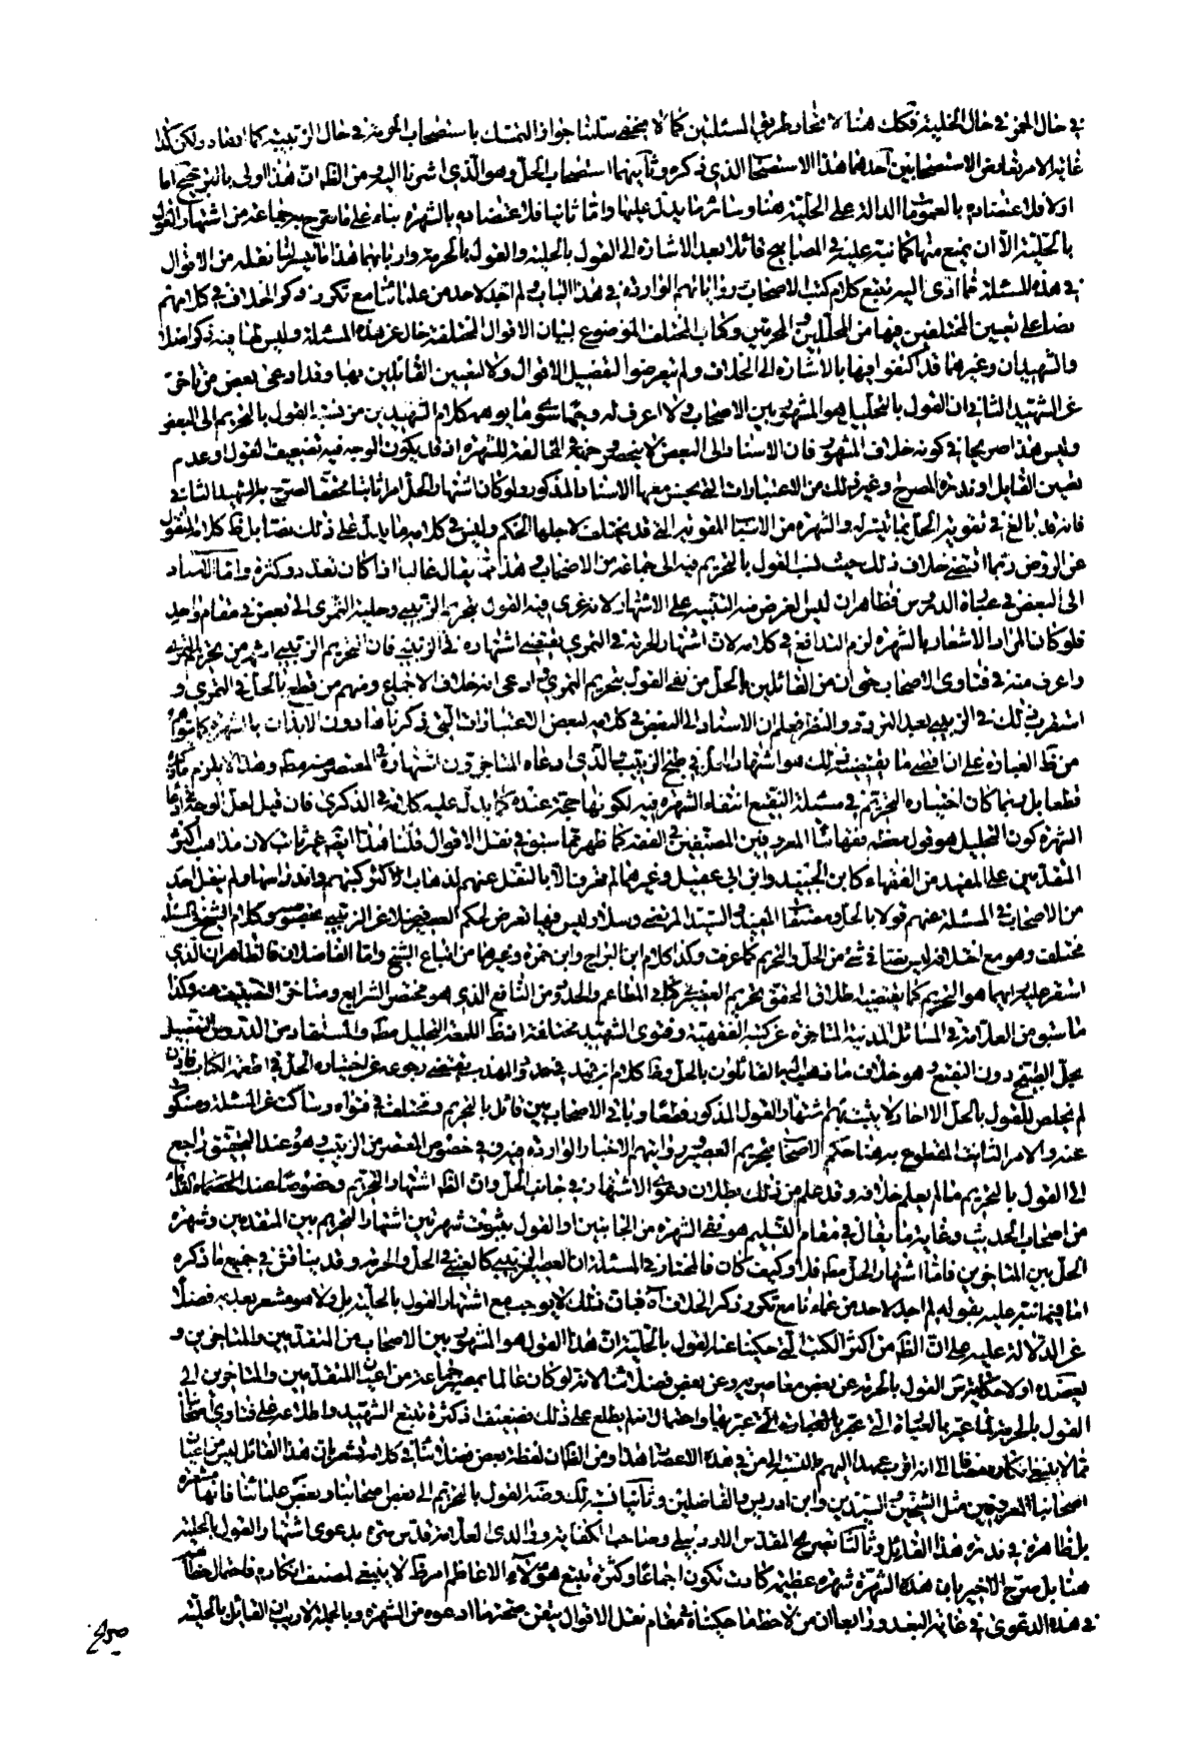 في حال الخمر في حال الحلية فكك هنا لاتحاد طريق المسئلتين كما لا يخفى سلمنا جواز التمسك باستصحاب الحرمة في حال الزبيبية كما افاد ولكن
غاية الامر تعارض الاستصحابين احدهما هذا الاستصحاب الذي ذكره وثانيهما استصحاب الحل وهو الذي اشرنا اليه ومن الظ ان هذا اولى بالترجيح اما
اولا فلاعتضاده بالعمومات الدالة على الحلية هنا وسائر ما يدل عليها واما ثانيا فلاعتضاده بالشهرة بناء على ما صرح به جماعة من اشتهار القول
بالحلية الا ان يمنع منها كما نبه عليه في المصابيح قائلا بعد الاشارة الى القول بالحلية والقول بالحرمة واربابهما هذا ما تيسر لنا نقله من الاقوال
في هذه المسئلة مما ادى اليه تتبع كلام كتب الاصحاب ورواياتهم الواردة في هذا الباب ولم اجد لاحد من علمائنا مع تكرر ذكر الخلاف في كلامهم
نصا على تعيين المختلفين فيها من المحللين والمحرمين وكتاب المختلف الموضوع لبيان الاقوال المختلفة خال عن هذه المسئلة وليس لها فيه ذكر اصلا
والشهيدان وغيرهما قد اكتفوا فيها بالاشارة الى الخلاف ولم يتعرضوا لتفصيل الاقوال ولا لتعيين القائلين بها وقد ادعى بعض من تاخر
عن الشهيد الثاني ان القول بالتحليل هو المشهور بين الاصحاب ولا اعرف له وجها سوى ما يوهمه كلام الشهيدين من نسبة القول بالتحريم الى البعض
وليس هذا صريحا في كونه خلاف المشهور فان الاسناد الى البعض لا ينحصر وجهه في المخالفة للشهرة اذ قد يكون الوجه فيه تضعيف القول او عدم
تعيين القايل او ندرة المصرح وغير ذلك من الاعتبارات التي يحسن معها الاسناد المذكور ولو كان اشتهار الحل امرا ثابتا محققا لصرح به الشهيد الثاني
فانه قد بالغ في تقوية الحل بما تيسر له والشهرة من الاسباب المقوية التي قد يختلف لاجلها الحكم وليس في كلامه ما يدل على ذلك نصا بل ظ كلامه المنقول
عن الروض ربما اقتضى خلاف ذلك حيث نسب القول بالتحريم فيه الى جماعة من الاصحاب وهذا مما يقال غالبا اذا كان تعدد وكثرة واما الاسناد
الى البعض في عبارة الدروس فظاهر ان ليس الغرض منه التنبيه على الاشتهار لانه عزى فيه القول بتحريم الزبيبي وحلية التمري الى بعض في مقام واحد
فلو كان المراد الاشعار بالشهرة لزم التدافع في كلامه لان اشتهار الحرمة في التمري يقتضي اشتهاره في الزبيبي فان تحريم الزبيبي اشهر من تحريم التمري
واعرف منه في فتاوى الاصحاب حتى ان من القائلين بالحل من نفى القول بتحريم التمري وادعى انه خلاف الاجماع ومنهم من قطع بالحل في التمري و
استقرب ذلك في الزبيبي بعد التردد والنظر فعلم ان الاسناد الى البعض في كلامه لبعض الاعتبارات التي ذكرناها دون الايذان بالشهرة كما توهم
من ظ العبارة على ان اقصى ما يقتضيه ذلك هو اشتهار الحل في طبخ الزبيب الذي ادعاه المتاخرون اشتهاره في المعتصر منه مط وهذا لا يلزم
قطعا بل ربما كان اختياره التحريم في مسئلة النقيع انتفاء الشهرة فيه لكونها حجة عنده كما يدل عليه كلامه في الذكرى فان قيل لعل الوجه في ادعاء
الشهرة كون التحليل هو قول معظم فقهائنا المعروفين المصنفين في الفقه كما ظهر مما سبق في نقل الاقوال قلنا هذا ايضا غير ثابت لان مذاهب اكثر
المتقدمين على المفيد من الفقهاء كابن الجنيد وابن ابي عقيل وغيرهما لم نعرفها الا بالنقل عنهم لذهاب الاكثر كتبهم واندراسها ولم ينقل احد
من الاصحاب في المسئلة عنهم قولا بالحل ومصنفات المفيد والسيد المرتضى وسلار ليس فيها تعرض لحكم العصير فضلا عن الزبيبي بخصوصه وكلام الشيخ في المسئلة
مختلف وهو مع اختلافه ليس نصا في شئ من الحل والتحريم كما عرفت وكذا كلام ابن البراج وابن حمزة وغيرهما من اتباع الشيخ واما الفاضلان فالظاهر ان الذي
استقر عليه رايهما هو التحريم كما يقتضيه اطلاق المحقق بتحريم العصير في كتابي المطاعم والحدود من النافع الذي هو مختصر الشرايع ومتاخر التصنيف عنه وكذا
ما سبق من العلامة في المسائل المدنية المتاخرة عن كتبه الفقهية وفتوى الشهيد مختلفة اذ ظ اللمعة التحليل مط والمستفاد من الدروس التفصيل
بحل الطبيخ دون النقيع وهو خلاف ما ذهب اليه القائلون بالحل وظ كلام ابن فهد في حدود المهذب يقتضي رجوعه عن اختياره الحل في اطعمة الكتاب فاذن
لم يخلص للقول بالحل الا احاد لا يثبت بهم اشتهار القول المذكور قطعا وباقي الاصحاب بين قائل بالتحريم ومختلف في فتواه وساكت عن المسئلة ومسكوت
عنه والامر الثابت المقطوع به هنا حكم الاصحاب بتحريم العصير وروايتهم الاخبار الواردة فيه وفي خصوص المعتصر من الزبيب وهو عند التحقيق راجع
الى القول بالتحريم ما لم يعلم خلافه وقد علم من ذلك بطلان دعوى الاشتهار في جانب الحل وان الظ اشتهار التحريم وخصوصا عند القدماء
من اصحاب الحديث وغاية ما يقال في مقام التسليم هو نفى الشهرة من الجانبين او القول بثبوت شهرتين اشتهار التحريم بين المتقدمين وشهرة
الحل بين المتاخرين فاما اشتهار الحل مط فلا وكيف كان فالمختار في المسئلة ان العصير الزبيبي كالعنبي في الحل والحرمة وقد يناقش في جميع ما ذكره
اما فيما نبه عليه بقوله لم اجد لاحد من علمائنا مع تكرر ذكر الخلاف آه فبان ذلك لا يوجب منع اشتهار القول بالحلية بل ولا هو مشعر بعدمه فضلا
عن الدلالة عليه على ان الظ من اكثر الكتب التي حكينا عنها القول بالحلية ان هذا القول هو المشهور بين الاصحاب من المتقدمين والمتاخرين و
يعضده اولا حكاية القول بالحرمة عن بعض معاصريه وعن بعض فضلائنا لانه لو كان عالما بمصير جماعة من اعيان المتقدمين والمتاخرين الى
القول بالحرمة لما عبر بالعبارة التي عبر بالعبارة التي عبر بها واحتمال انه لم يطلع على ذلك ضعيف اذ كثرة تتبع الشهيد واطلاعه على فتاوي اصحابنا
مما لا ينبغي انكاره مضافا الى انه اقرب عهدا اليهم بالنسبة الى من في هذه الاعصار هذا ومن الظ ان لفظة بعض فضلائنا في كلامه تشعر بان هذا القائل ليس من اعيان
اصحابنا المعروفين مثل الشيخين والسيدين وابن ادريس والفاضلين وثانيا نسبة لك وضه القول بالتحريم الى بعض اصحابنا وبعض علمائنا فانها مشعرة
بل ظاهرة في ندرة هذا القائل وثالثا تصريح المقدس الاردبيلي وصاحب الكفاية والدي العلامة قدس سره بدعوى اشتهار القول بالحلية
هنا بل صرح الاخير بان هذه الشهرة شهرة عظيمة كادت تكون اجماعا وكثرة تتبع هؤلاء الاعاظم امر ظ لا ينبغي لمنصف انكاره فاحتمال خطائهم
في هذه الدعوى في غاية البعد ورابعا ان من لاحظ ما حكيناه في مقام نقل الاقوال يتقن صحة ما ادعوه من الشهرة وبالجملة لا ريب ان القائل بالحلية